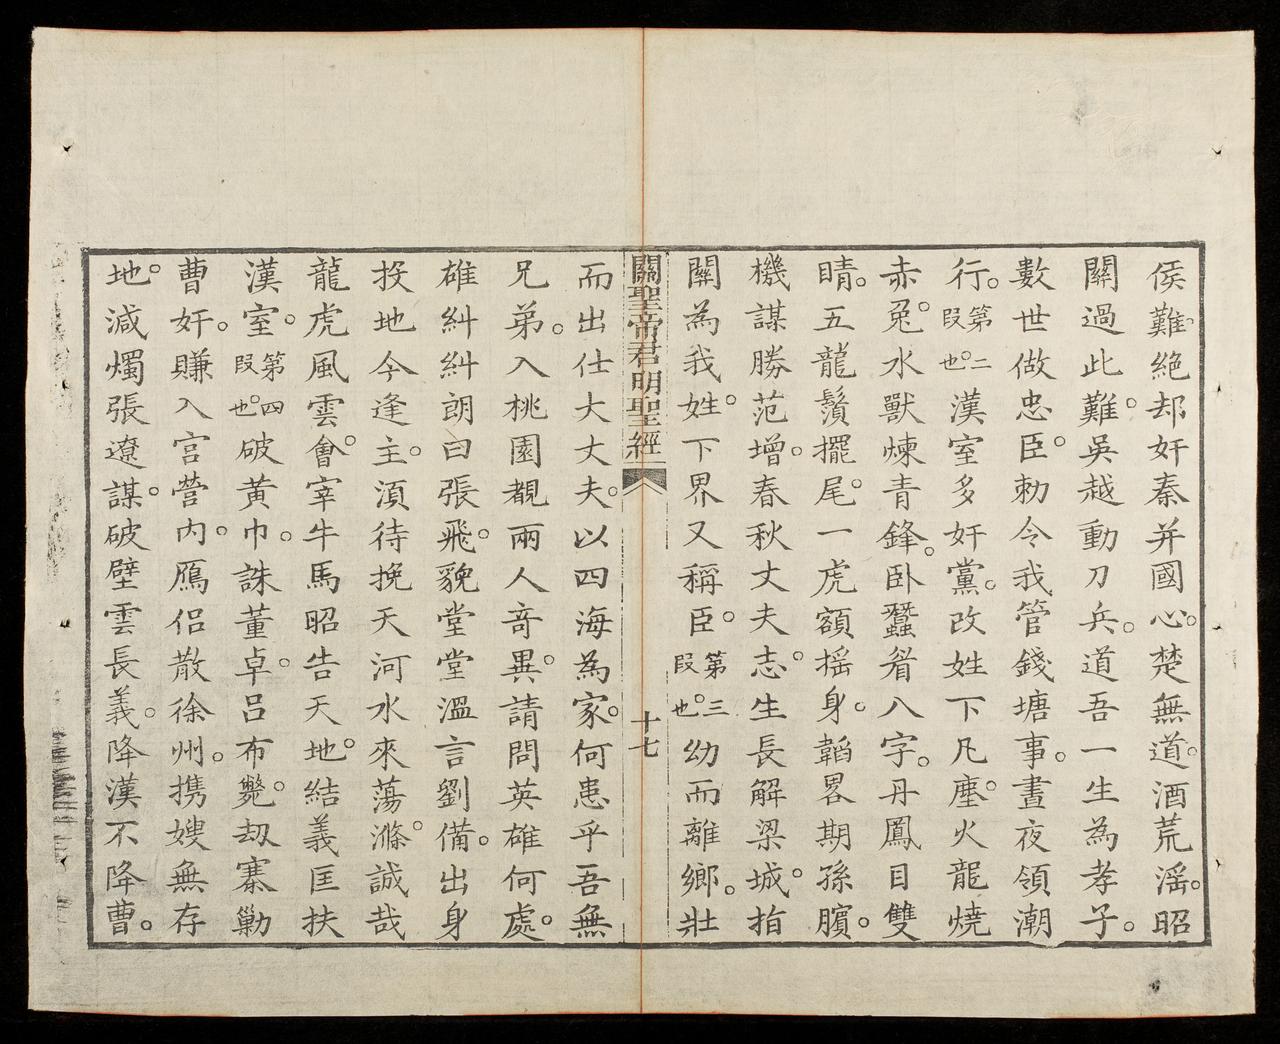 侯難絶却奸秦并國心。楚無道。酒荒滛。昭
關過此難。吳越動刀兵。道吾一生為孝子。
數世做忠臣。勅令我管錢塘事。晝夜領潮
行。第二叚也。漢室多奸黨。改姓下凡塵。火龍燒
赤兎。水獸煉青鋒。卧蠶眉八字。丹鳳目雙
睛。五龍鬚擺尾。一虎額摇身。韜畧期孫臏。
機謀勝范增。春秋丈夫志。生長解梁城。指
關為我姓。下界又稱臣。第三叚也。幼而離鄉。壯
關聖帝君明聖經
十七
而出仕大丈夫。以四海為家。何患乎吾無
兄弟。入桃園覩兩人竒異。請問英雄何處。
雄糾糾朗曰張飛。貌堂堂溫言劉備。出身
投地今逢主。湏待挽天河水來蕩滌。誠哉
龍虎風雲會。宰牛馬昭告天地。結義匡扶
漢室。第四叚也。破黄巾。誅董卓。呂布斃。刧寨勦
曹奸。賺入宫營内。鴈侣散徐州。携嫂無存
地。滅燭張遼謀。破壁雲長義。降漢不降曹。